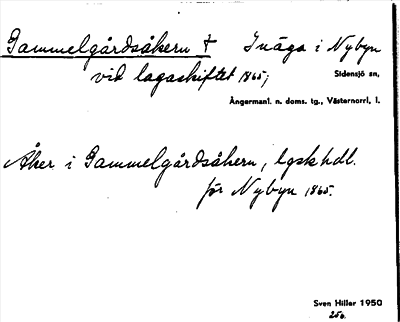 Gammelgårdsåkern † Inäga i Nybyn
vid lagaskiftet 1865;
Sidensjö sn,
Ångermanl. n. doms. tg., Västernorrl. l.
Åker i Gammelgårdsåkern, lgskhdl.
för Nybyn 1865.
Sven Hiller 1950